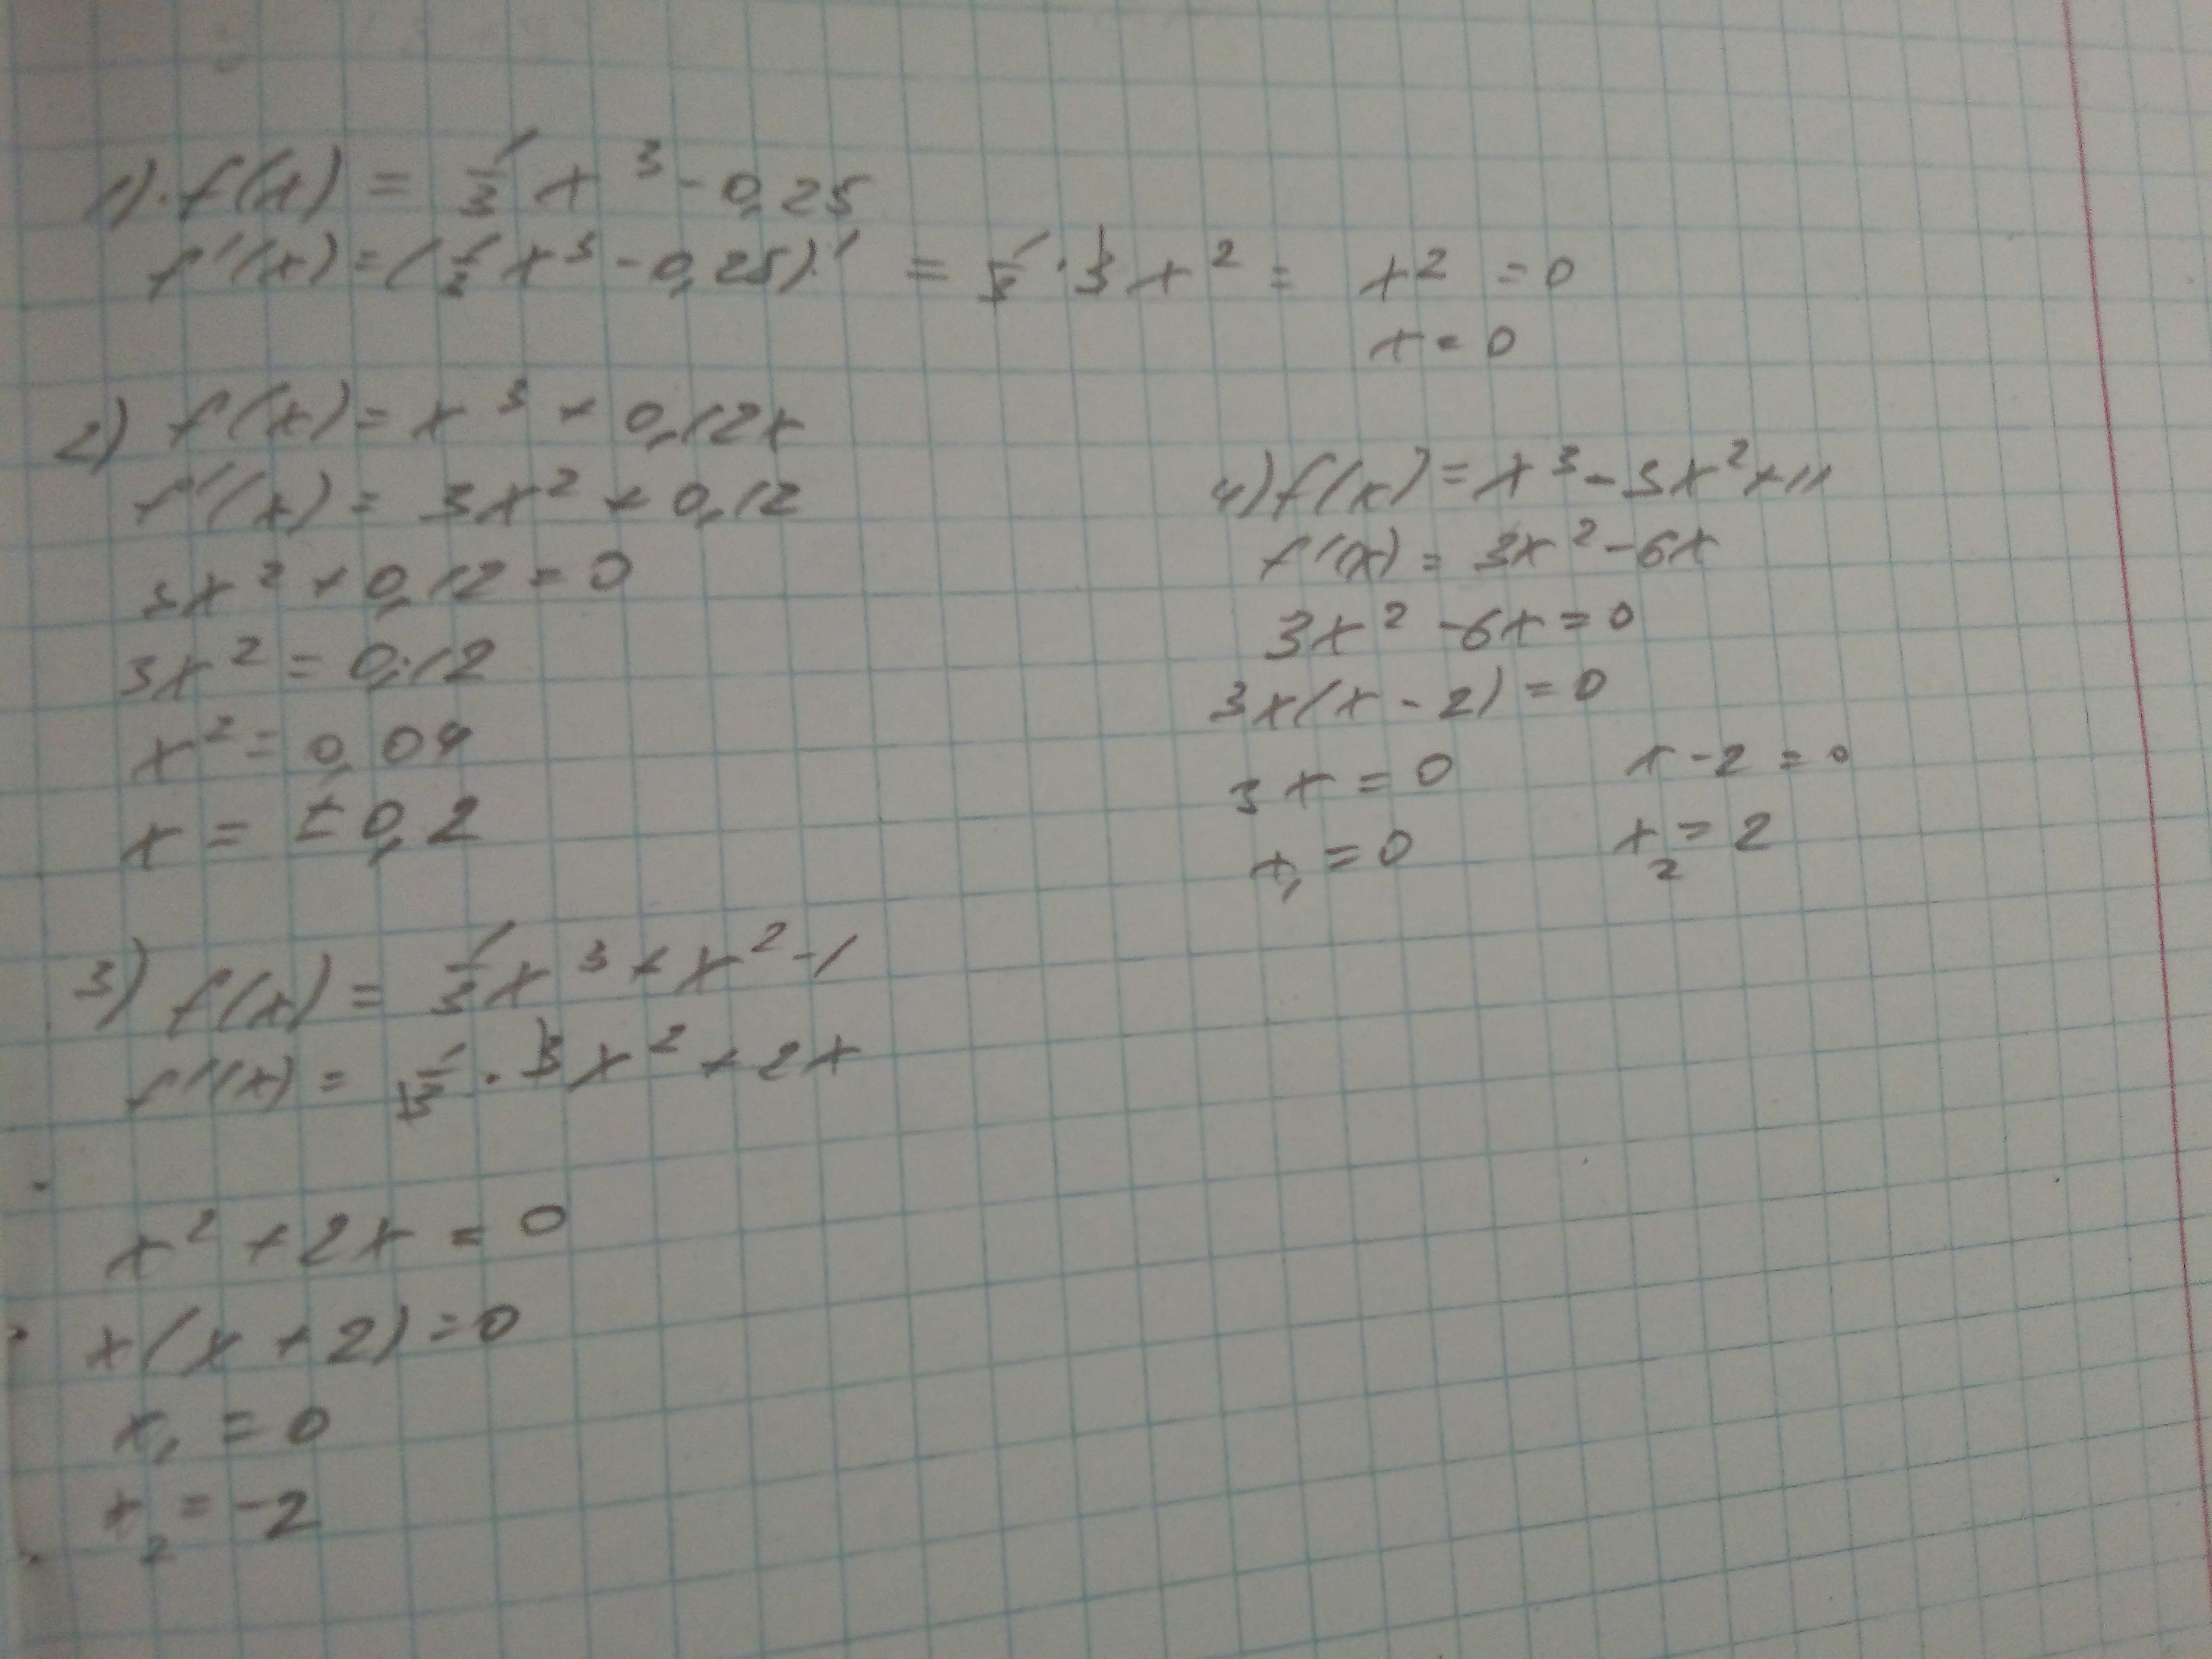 1). f(x) = 1/3 x³ - 0,25
f'(x) = (1/3 x³ - 0,25)' = 1/3 · 3x² = x² = 0
x = 0
2) f(x) = x³ + 0,12x
f'(x) = 3x² + 0,12
3x² + 0,12 = 0
3x² = 0,12
x² = 0,04
x = ± 0,2
3) f(x) = 1/3 x³ + x² - 1
f'(x) = 1/3 · 3x² + 2x
x² + 2x = 0
x(x + 2) = 0
x₁ = 0
x₂ = -2
4) f(x) = x³ - 3x² + 11
f'(x) = 3x² - 6x
3x² - 6x = 0
3x(x - 2) = 0
3x = 0 x - 2 = 0
x₁ = 0 x₂ = 2